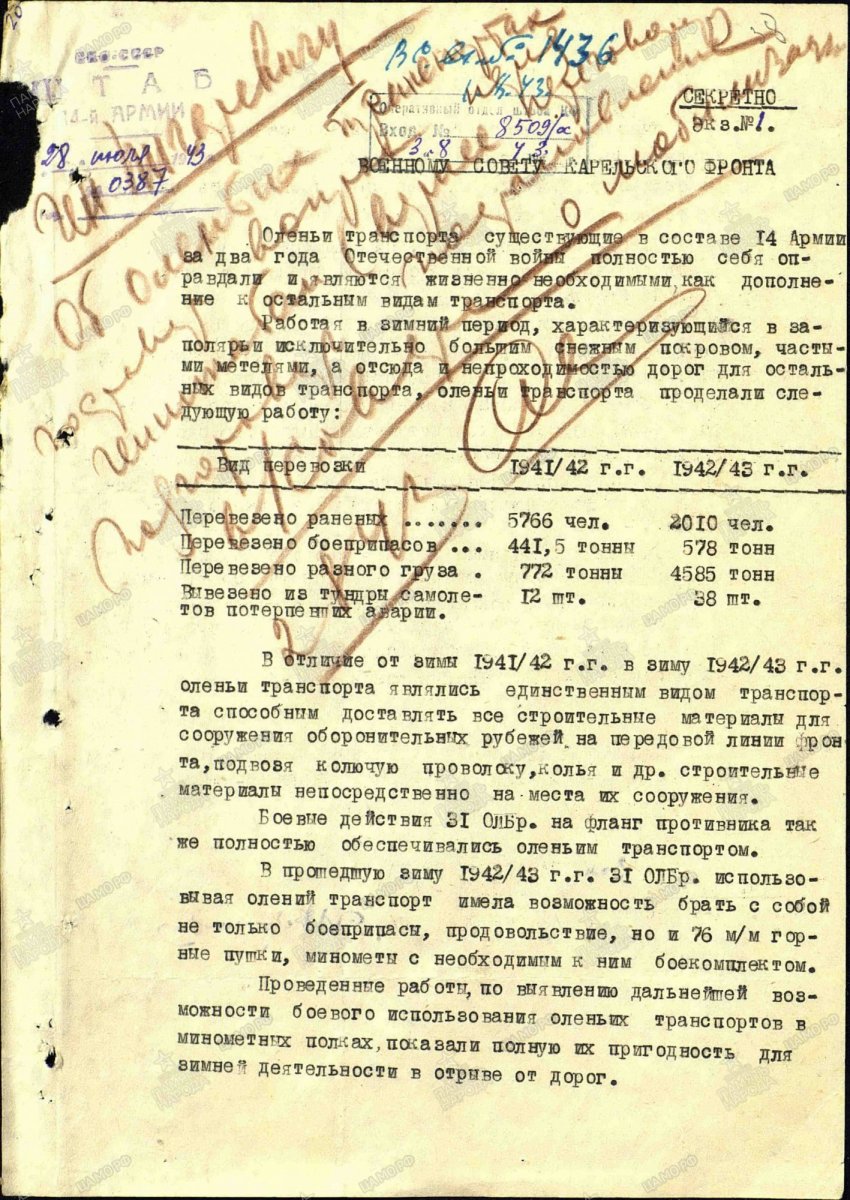 СССР
ШТАБ
14-й АРМИИ
28 июля 1943
0387
1436
Оперативный отдел штаба КФ
Вход. №
8509/а
3.8 43
СЕКРЕТНО
Экз.№1.
ВОЕННОМУ СОВЕТУ КАРЕЛЬСКОГО ФРОНТА
Об оленьих транспортах
о мобилизации
Оленьи транспорта существующие в составе 14 Армии
за два года Отечественной войны полностью себя оп-
равдали и являются жизненно-необходимыми,как дополне-
ние к остальным видам транспорта.
Работая в зимний период, характеризующийся в за-
полярьи исключительно большим снежным покровом, часты-
ми метелями, а отсюда и непроходимостью дорог для осталь-
ных видов транспорта, оленьи транспорта проделали сле-
дующую работу:
Вид перевозки 1941/42 г.г. 1942/43 г.г.
Перевезено раненых ....... 5766 чел. 2010 чел.
Перевезено боеприпасов ... 441,5 тонны 578 тонн
Перевезено разного груза . 772 тонны 4585 тонн
Вывезено из тундры самоле- 12 шт. 38 шт.
тов потерпевших аварии.
В отличие от зимы 1941/42 г.г. в зиму 1942/43 г.г.
оленьи транспорта являлись единственным видом транспор-
та способным доставлять все строительные материалы для
сооружения оборонительных рубежей на передовой линии фрон
та,подвозя колючую проволоку,колья и др. строительные
материалы непосредственно на места их сооружения.
Боевые действия 31 ОЛБр. на фланг противника так
же полностью обеспечивались оленьим транспортом.
В прошедшую зиму 1942/43 г.г. 31 ОЛБр. использо-
вывая олений транспорт имела возможность брать с собой
не только боеприпасы, продовольствие, но и 76 м/м гор-
ные пушки, минометы с необходимым к ним боекомплектом.
Проведенные работы,по выявлению дальнейшей воз-
можности боевого использования оленьих транспортов в
минометных полках,показали полную их пригодность для
зимней деятельности в отрыве от дорог.